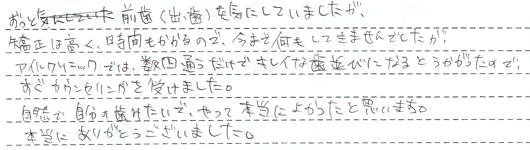 ずっと気にしていた 前歯(出歯)を気にしていましたが、
矯正は高く、時間もかかるので、今まで何もしてきませんでしたが、
アイルクリニックでは、数回通うだけでキレイな歯並びになるとうかがったので、
すぐカウンセリングを受けました。
自然で自分の歯みたいで、やって本当によかったと思います。
本当にありがとうございました。